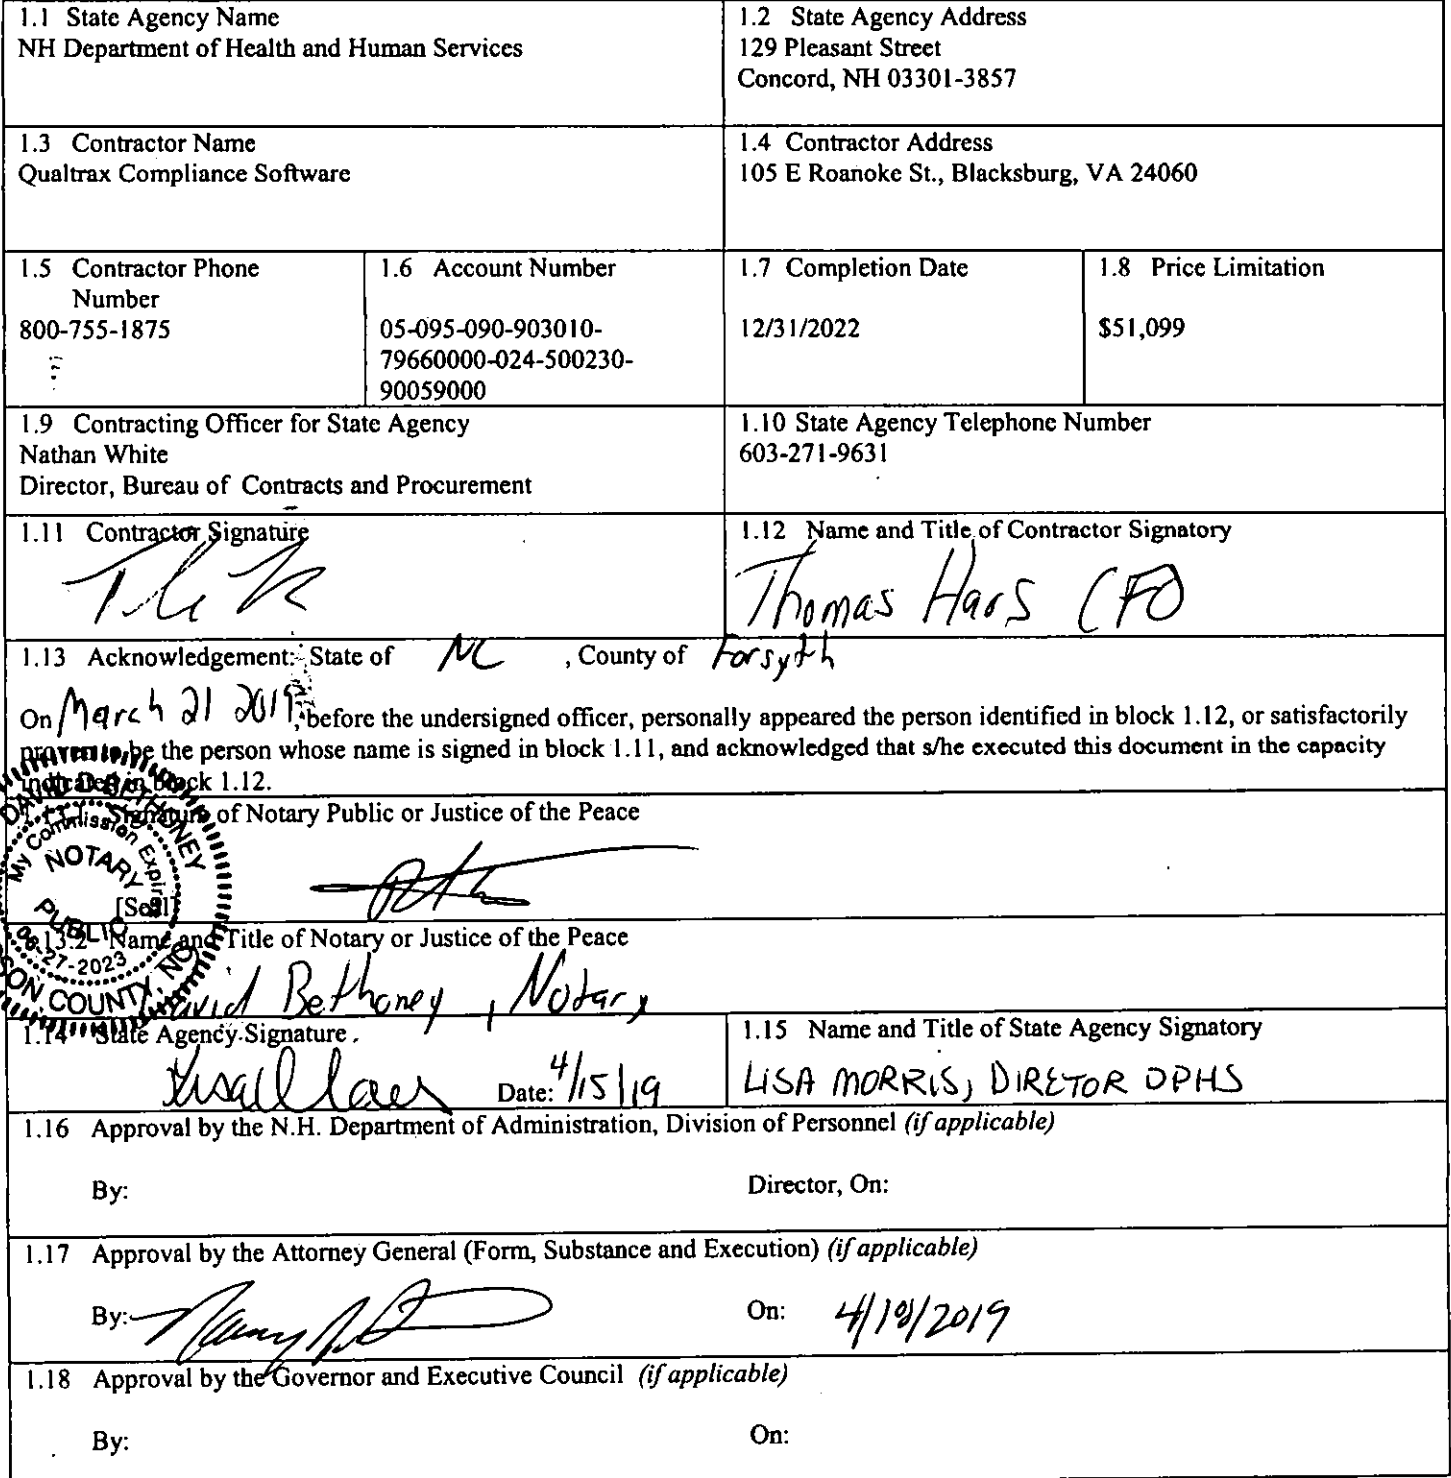 1.1 State Agency Name
NH Department of Health and Human Services
1.2 State Agency Address
129 Pleasant Street
Concord, NH 03301-3857
1.3 Contractor Name
Qualtrax Compliance Software
1.4 Contractor Address
105 E Roanoke St., Blacksburg, VA 24060
1.5 Contractor Phone
Number
800-755-1875
1.6 Account Number
05-095-090-903010-
79660000-024-500230-
90059000
1.7 Completion Date
12/31/2022
1.8 Price Limitation
$51,099
1.9 Contracting Officer for State Agency
Nathan White
Director, Bureau of Contracts and Procurement
1.10 State Agency Telephone Number
603-271-9631
1.11 Contractor Signature
1.12 Name and Title of Contractor Signatory
Thomas Hars CFO
1.13 Acknowledgement: State of NC , County of Forsyth
On March 21 2019, before the undersigned officer, personally appeared the person identified in block 1.12, or satisfactorily
proven to be the person whose name is signed in block 1.11, and acknowledged that s/he executed this document in the capacity
indicated in block 1.12.
Signature of Notary Public or Justice of the Peace
DAVID D BETHONEY
My Commission Expires
NOTARY
PUBLIC
06-27-2023
COUNTY, NC
[Seal]
.13.2 Name and Title of Notary or Justice of the Peace
David Bethoney, Notary
1.14 State Agency Signature
Date: 4/15/19
1.15 Name and Title of State Agency Signatory
LISA MORRIS, DIRETOR DPHS
1.16 Approval by the N.H. Department of Administration, Division of Personnel (if applicable)
By:
Director, On:
1.17 Approval by the Attorney General (Form, Substance and Execution) (if applicable)
By:
On: 4/18/2019
1.18 Approval by the Governor and Executive Council (if applicable)
By:
On: